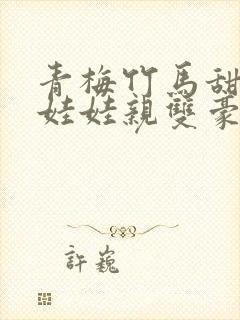 青梅竹馬甜
娃娃親雙豪
許巍